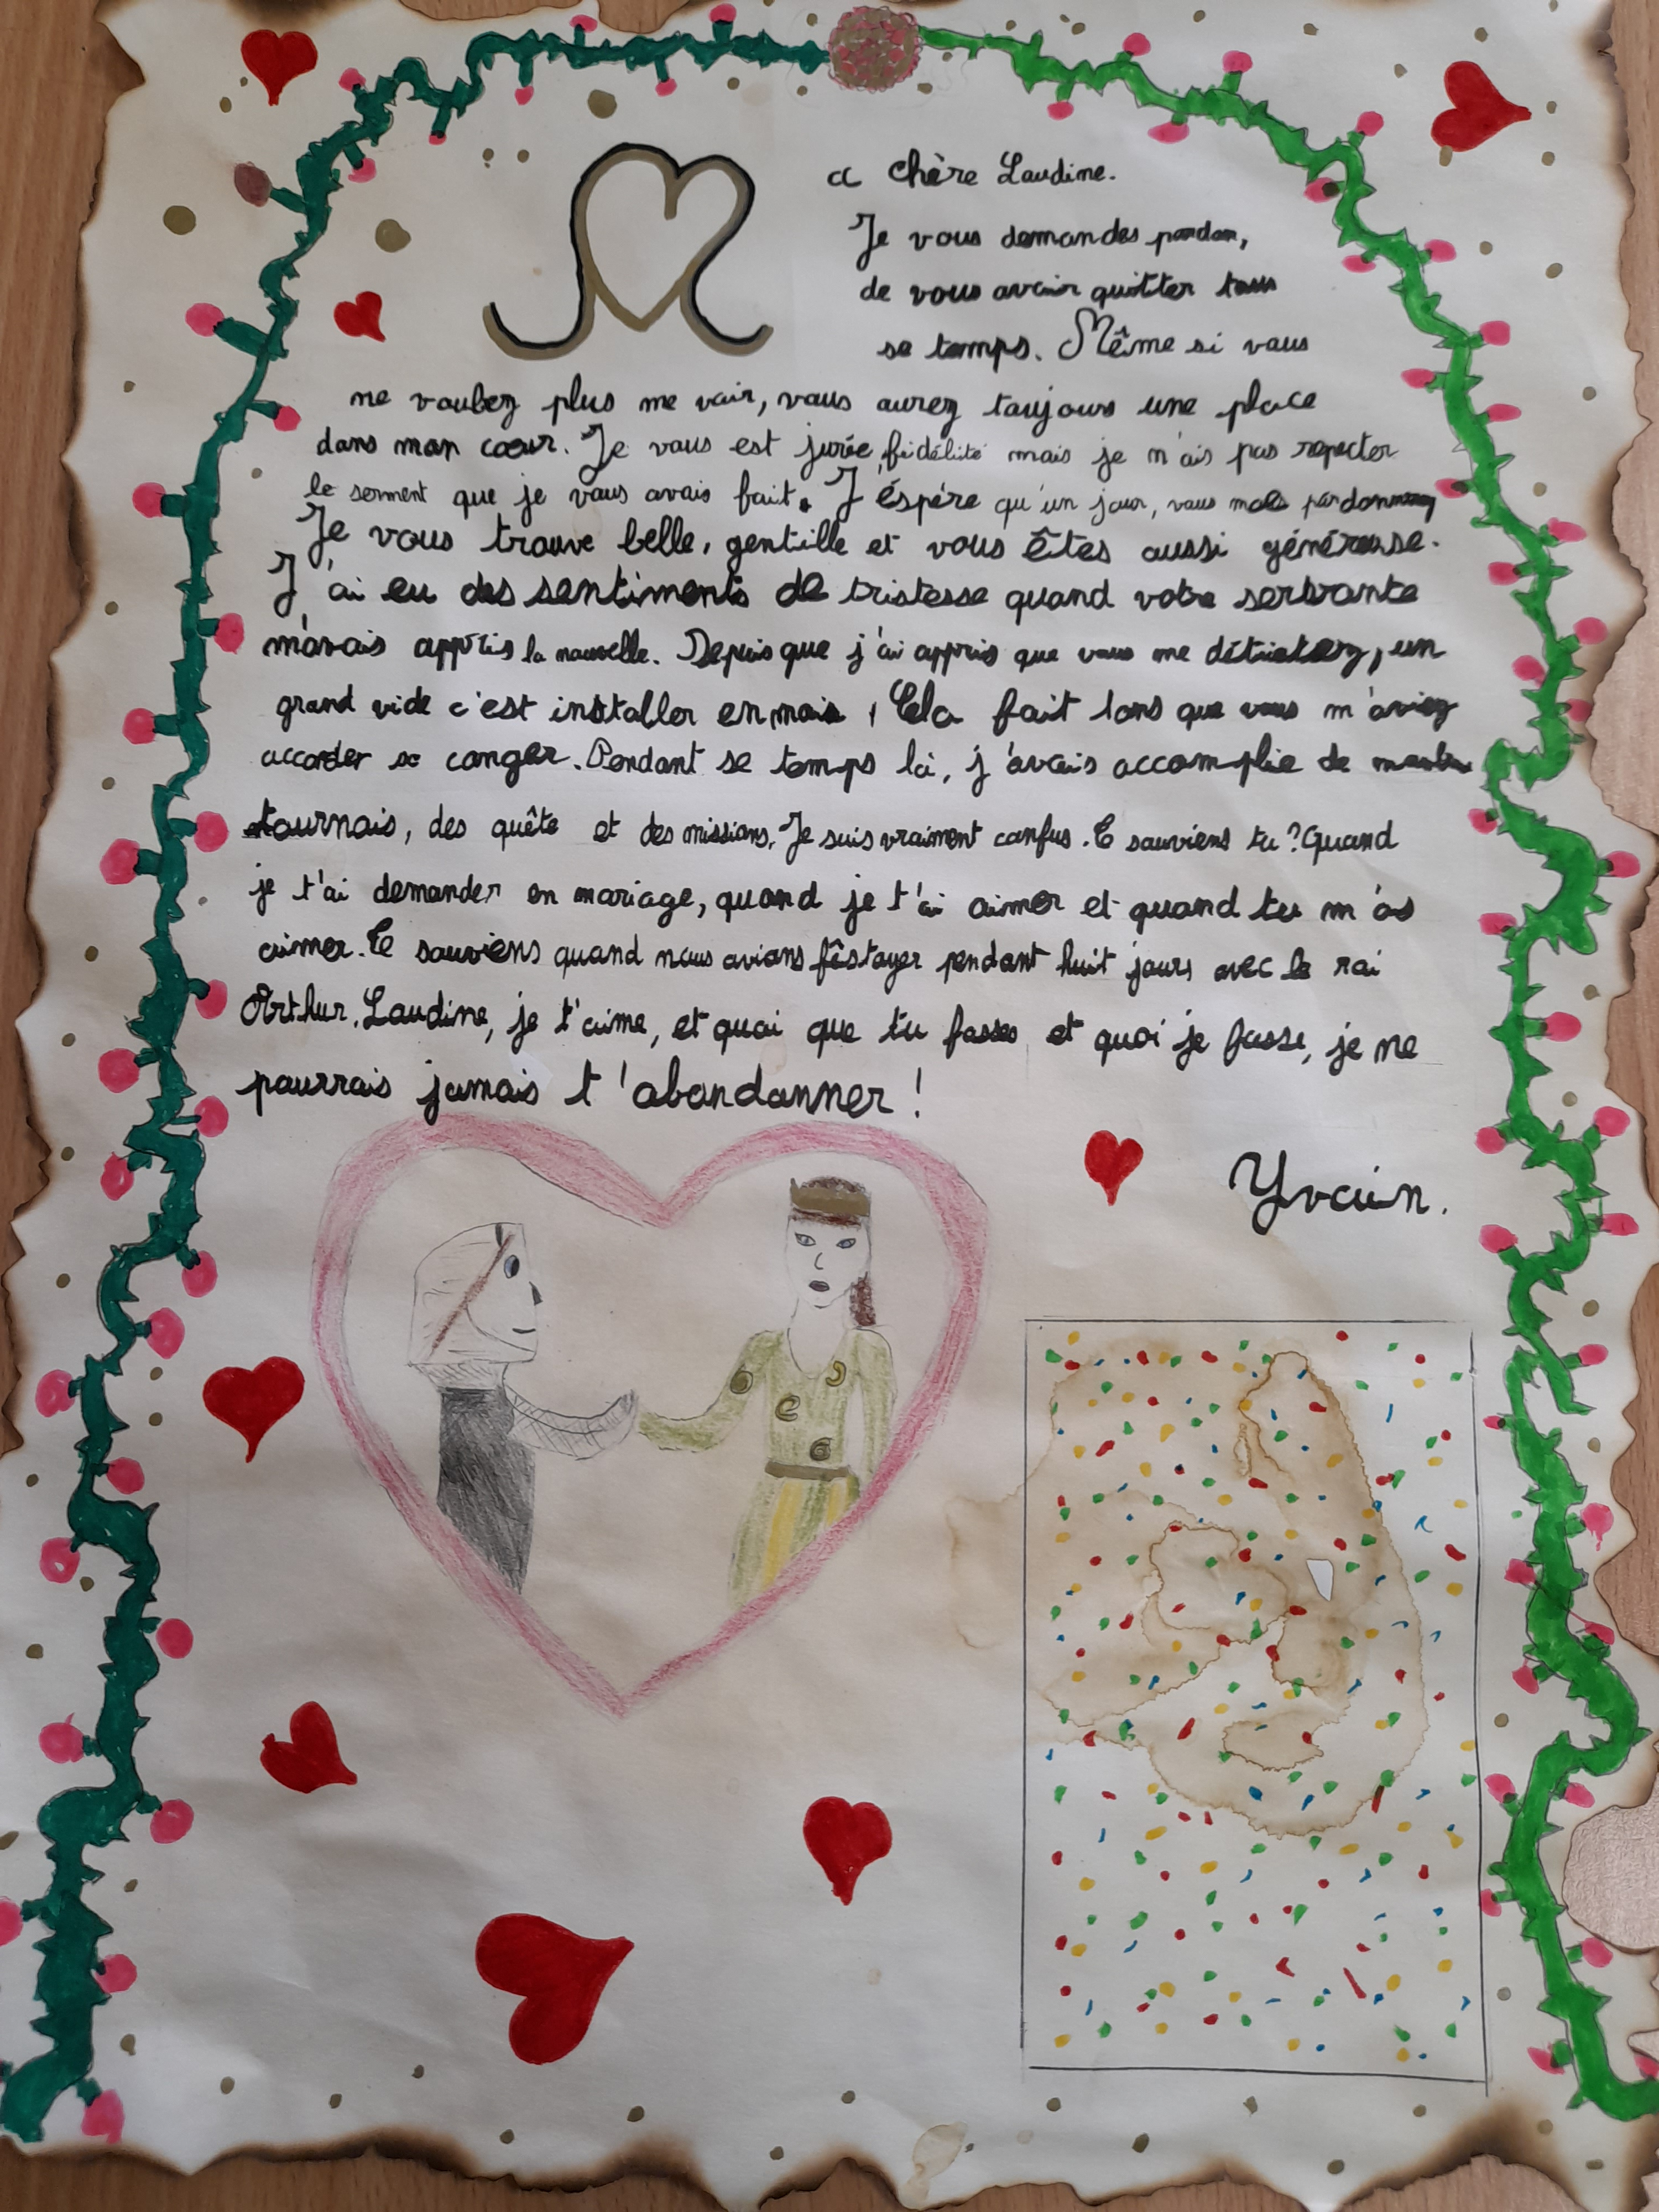 Ma chère Laudine.
Je vous demandes pardon,
de vous avoir quitter tous
se temps. Même si vous
ne voulez plus me voir, vous aurez toujours une place
dans mon cœur. Je vous est jurée fidélité mais je n'ais pas repecter
le serment que je vous avais fait. J'éspére qu'un jour, vous
Je vous trouve belle, gentille et vous êtes aussi généreuse.
J'ai eu des sentiments de tristesse quand votre servante
m'avais appris la nouvelle. Depuis que j'ai appris que vous me détestez, un
grand vide c'est installer en mois, Cela fait lons que vous m'aviez
accorder se conger. Pendant se temps là, j'avais accomplie de
tournois, des quête et des missions. Je suis vraiment confus. Te sauviens tu ? Quand
je t'ai demander en mariage, quand je t'ai aimer et quand tu m'as
aimer. Te sauviens quand nous avions fêstoyer pendant huit jours avec le roi
Arthur. Laudine, je t'aime, et quoi que tu fasses et quoi je fasse, je ne
pourrais jamais t'abandonner !
Yvain.